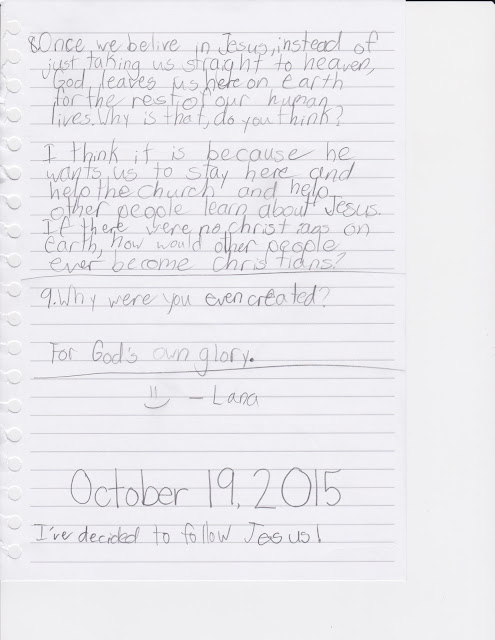 8. Once we belive in Jesus, instead of
just taking us straght to heaven,
God leaves us here on earth
for the rest of our human
lives. Why is that, do you think?
I think it is because he
wants us to stay here and
help the church and help
other people learn about Jesus.
If there were no christians on
earth, how would other people
ever become christians?
9. Why were you even created?
For God's own glory.
- Lana
October 19, 2015
I've decided to follow Jesus!